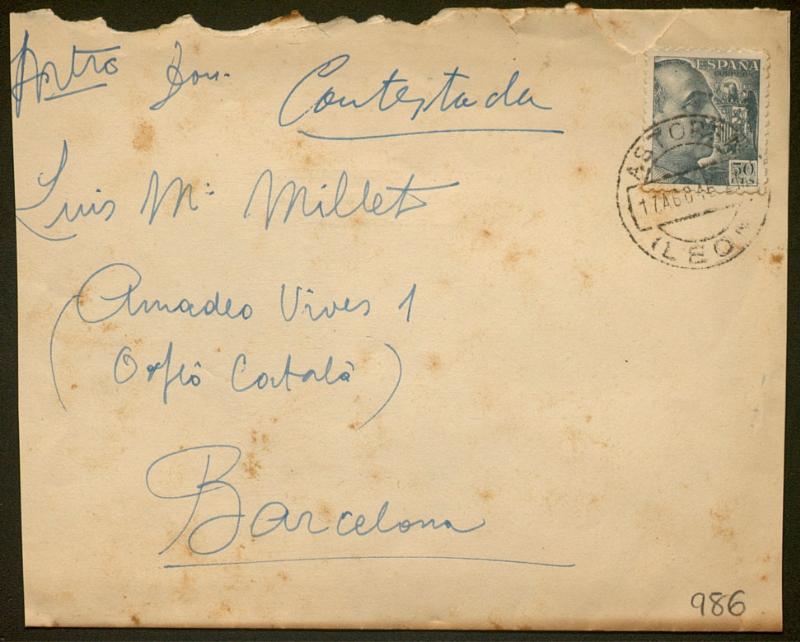 Mtro Don Contestada
Luis Mª Millet
Amadeo Vives 1
(Orfió Català)
Barcelona
ESPAÑA
CORREOS
50
CTS
ASTORGA
17 AGO 46
(LEON)
986